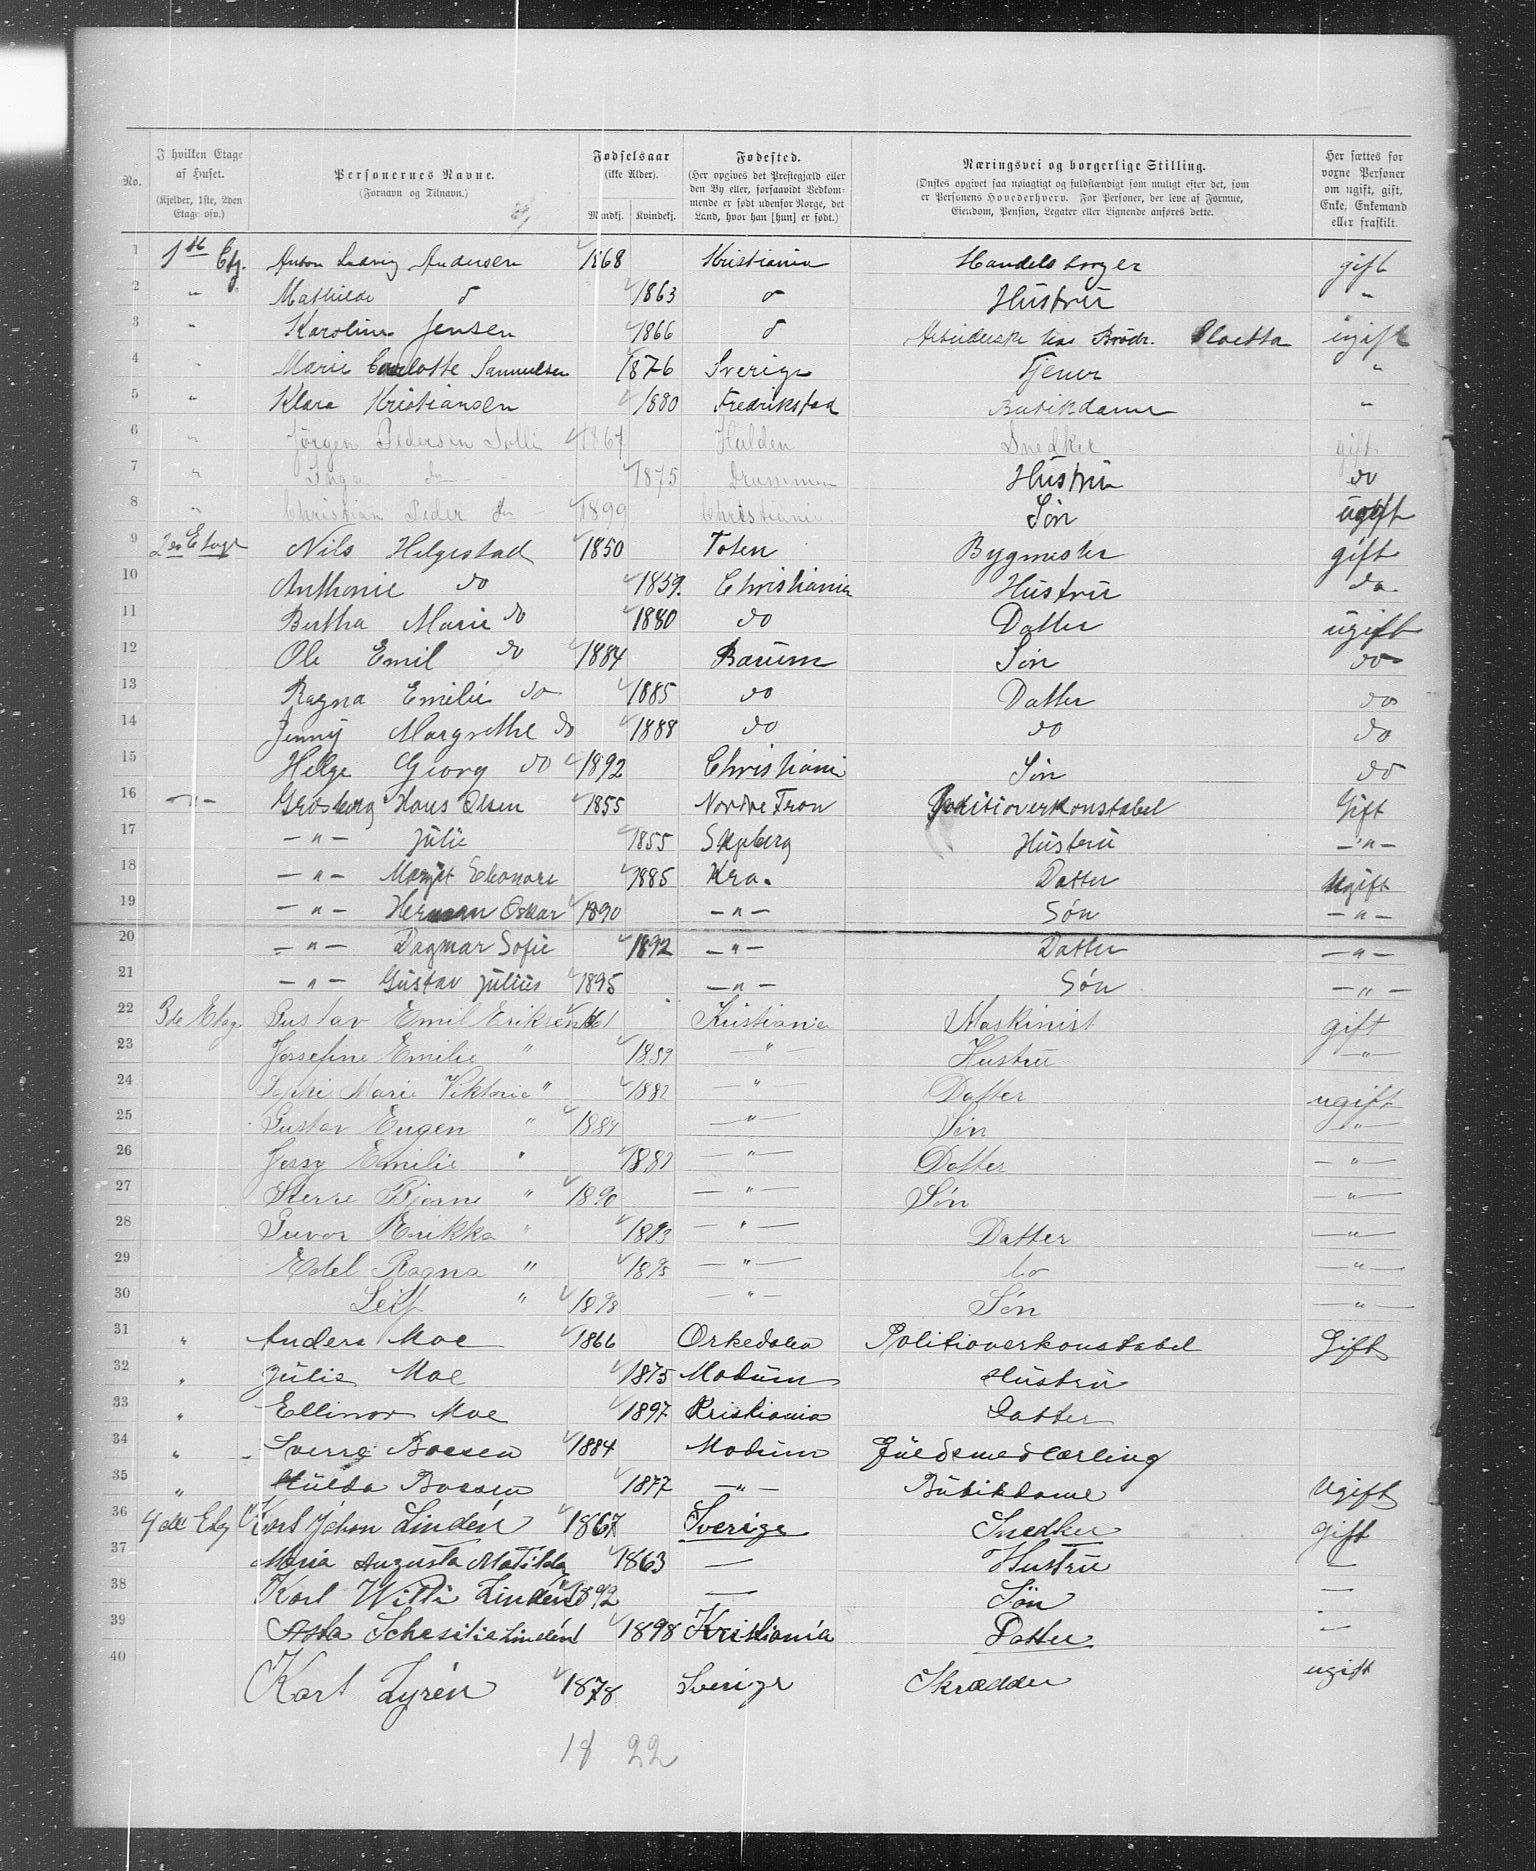 No. I hvilken Etage af Huset. (Kjelder, 1ste, 2den Etage osv.) Personernes Navne. (Fornavn og Tilnavn.) Fødselsaar (ikke Alder). Mandkj. Kvindekj. Fødested. (Her opgives det Prestegjæld eller den By eller, forsaavidt Vedkommende er født udenfor Norge, det Land, hvor han [hun] er født.) Næringsvei og borgerlige Stilling. (Ønskes opgivet saa nøiagtigt og fuldstændigt som muligt efter det, som er Personens Hovederhverv. For Personer, der leve af Formue, Eiendom, Pension, Legater eller Lignende anføres dette. Her sættes for voxne Personer om ugift, gift, Enke, Enkemand eller fraskilt.
1 1ste Etg. Anton Ludvig Andersen 1868 Kristiania Handelsborger gift
2 " Mathilde d 1863 d Hustru "
3 " Karoline Jensen 1866 d Arbeiderske hos Brødr. Kloetta ugift
4 " Marie Carlotte Samuelsen 1876 Sverige Tjener "
5 " Klara Kristiansen 1880 Fredrikstad Butikdame "
6 " Jørgen Pedersen Solli 1867 Halden Snedker gift
7 " Inga do 1875 Drammen Hustru do
8 " Christian Peder do 1899 Christiania Søn ugift
9 2en Etage Nils Helgestad 1850 Toten Bygmester gift
10 Anthonie do 1859. Christiania Hustru do
11 Bertha Marie do 1880 do Datter ugift
12 Ole Emil do 1884 Bærum Søn do
13 Ragna Emilie do 1885 do Datter do
14 Jenny Margrethe do 1888 do do do
15 Helge Georg do 1892 Christiania Søn do
16 -"- Grøsberg Hans Olsen 1855 Nordre Fron Politioverkonstabel Gift
17 -"- Julie 1855 Skyberg Hustru -"-
18 -"- Margit Eleonore 1885 Kra. Datter Ugift
19 -"- Herman Oskar 1890 -"- Søn -"-
20 -"- Dagmar Sofie 1892 -"- Datter -"-
21 -"- Gustav Julius 1895 -"- Søn -"-
22 3de Etag Gustav Emil Eriksen 1861 Kristiania Maskinist gift
23 Josefine Emilie " 1859 -"- Hustru -"-
24 Marie Viktoria " 1882 " Datter ugift
25 Gustav Eugen " 1884 -"- Søn -"-
26 Jessy Emilie " -"- Datter -"-
27 Bjarne " 1890 -"- Søn -"-
28 Erikka " 1893 -"- Datter -"-
29 Edel Ragna " 1895 -"- do -"-
30 Leif " 1898 -"- Søn -"-
31 " Anders Moe 1866 Orkedalen Politioverkonstabel Gift
32 " Julie Moe 1875 Modum Hustru
33 " Ellinor Moe 1897 Kristiania Datter
34 " Sverre Boesen 1884 Modum Guldsmedlærling
35 " Hulda Boesen 1877 -"- Butikdame Ugift
36 4de Etg Karl Johan Lindén 1867 Sverige Snedker gift
37 Maria Augusta Matilda 1863 — Hustru —
38 Karl Willi Lindén 1892 — Søn —
39 Asta Lindén 1898 Kristiania Datter —
40 Karl Lyrén 1878 Sverige Skrædder ugift
18 22